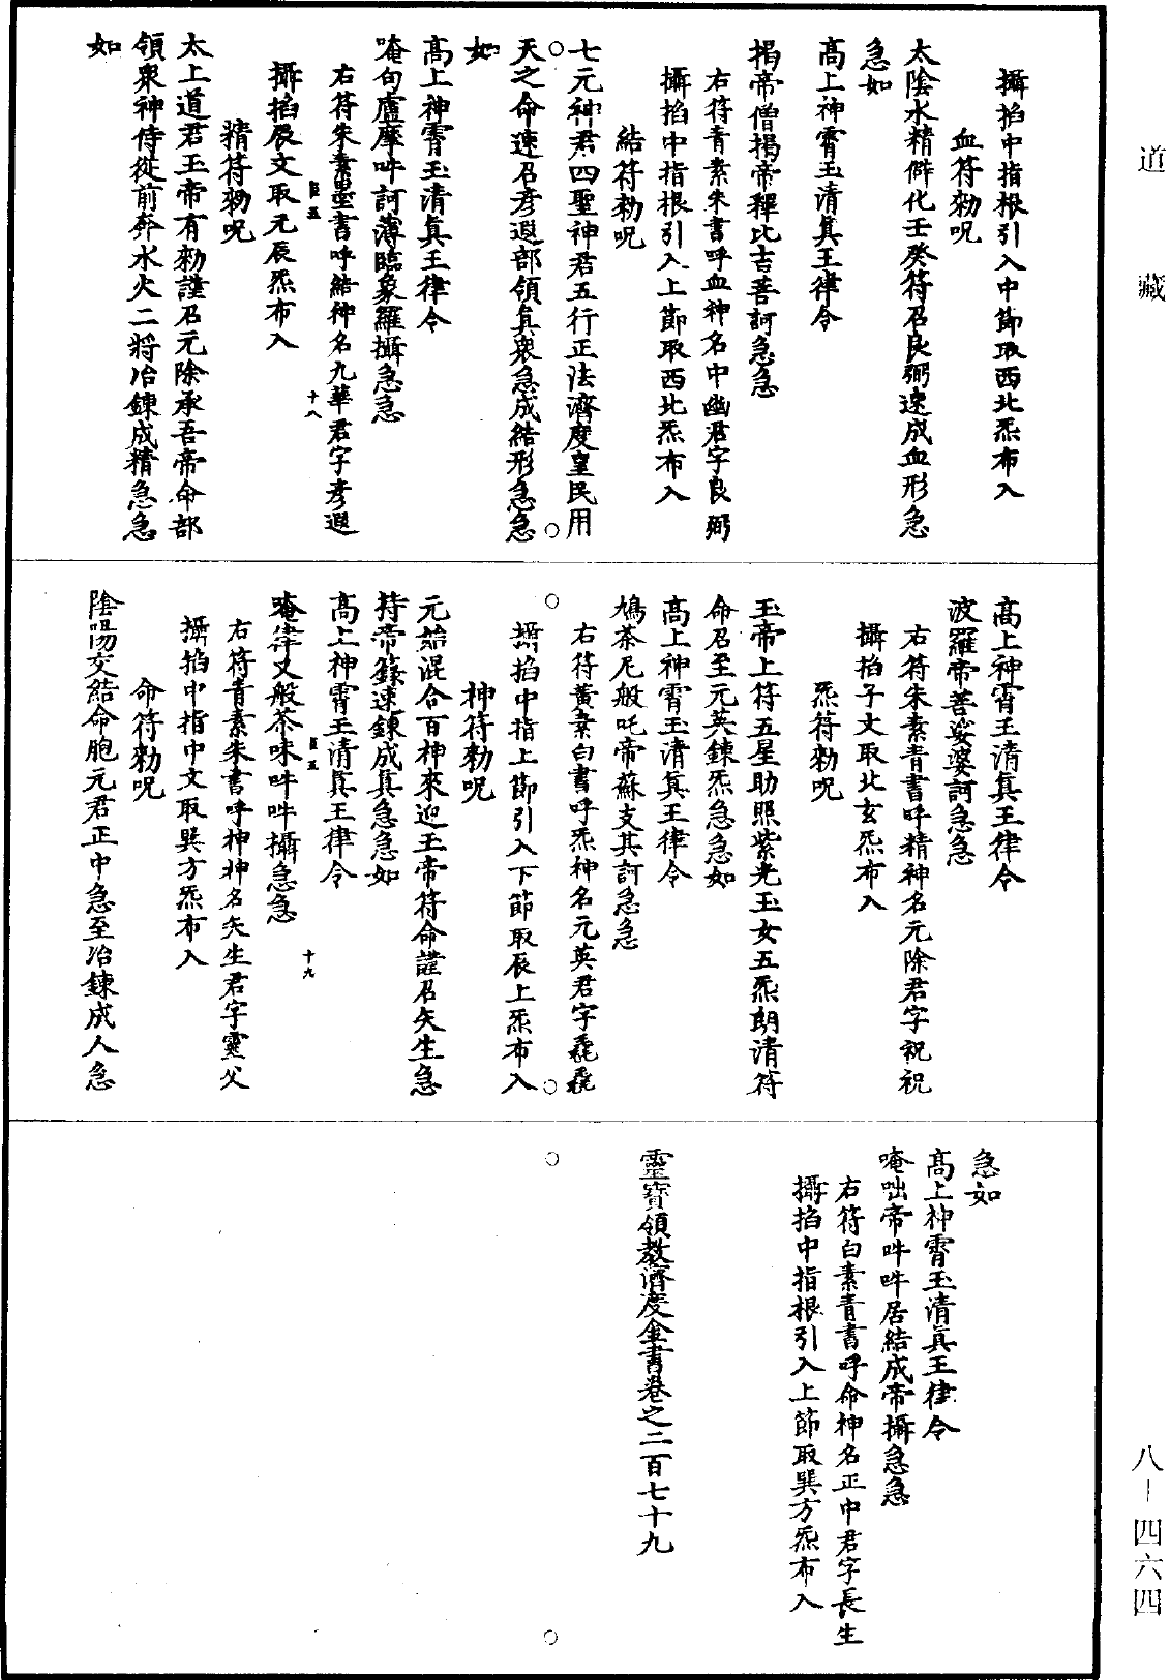 道藏
攝掐中指根引入中節取西北炁布入
血符勑呪
太陰水精僻化壬癸符召良弼速成血形急
急如
高上神霄玉清真王律令
揭帝僧揭帝釋比吉菩訶急急
右符青素朱書呼血神名中幽君字良弼
攝掐中指根引入上節取西北炁布入
結符勑呪
七元神君四聖神君五行正法濟度皇民用
天之命速召彦遐部領真衆急成結形急急
如
高上神霄玉清真王律令
唵句盧摩吽訶薄臨象羅攝急急
右符朱素墨書呼結神名九華君字彦遐
臣五
十八
攝掐辰文取元辰炁布入
精符勑呪
太上道君玉帝有勑謹召元除承吾帝命部
領衆神侍從前奔水火二將冶鍊成精急急
如
高上神霄玉清真王律令
波羅帝菩娑婆訶急急
右符朱素青書呼精神名元除君字祝祝
攝掐子文取北玄炁布入
炁符勑呪
玉帝上符五星助照紫光玉女五炁朗清符
命召至元英鍊炁急急如
高上神霄玉清真王律令
鳩荼尼般吒帝蘇支其訶急急
右符黃素白書呼炁神名元英君字毳毳
攝掐中指上節引入下節取辰上炁布入
神符勑呪
元始混合百神來迎玉帝符命謹召矢生急
持帝籙速鍊成真急急如
高上神霄玉清真王律令
臣五
十九
唵律又般荼味吽吽攝急急
右符青素朱書呼神神名矢生君字靈父
攝掐中指中文取巽方炁布入
命符勑呪
陰陽交結命胞元君正中急至冶鍊成人急
急如
高上神霄玉清真王律令
唵咄帝吽吽居結成帝攝急急
右符白素青書呼命神名正中君字長生
攝掐中指根引入上節取巽方炁布入
靈寶領教濟度金書卷之二百七十九
八－四六四